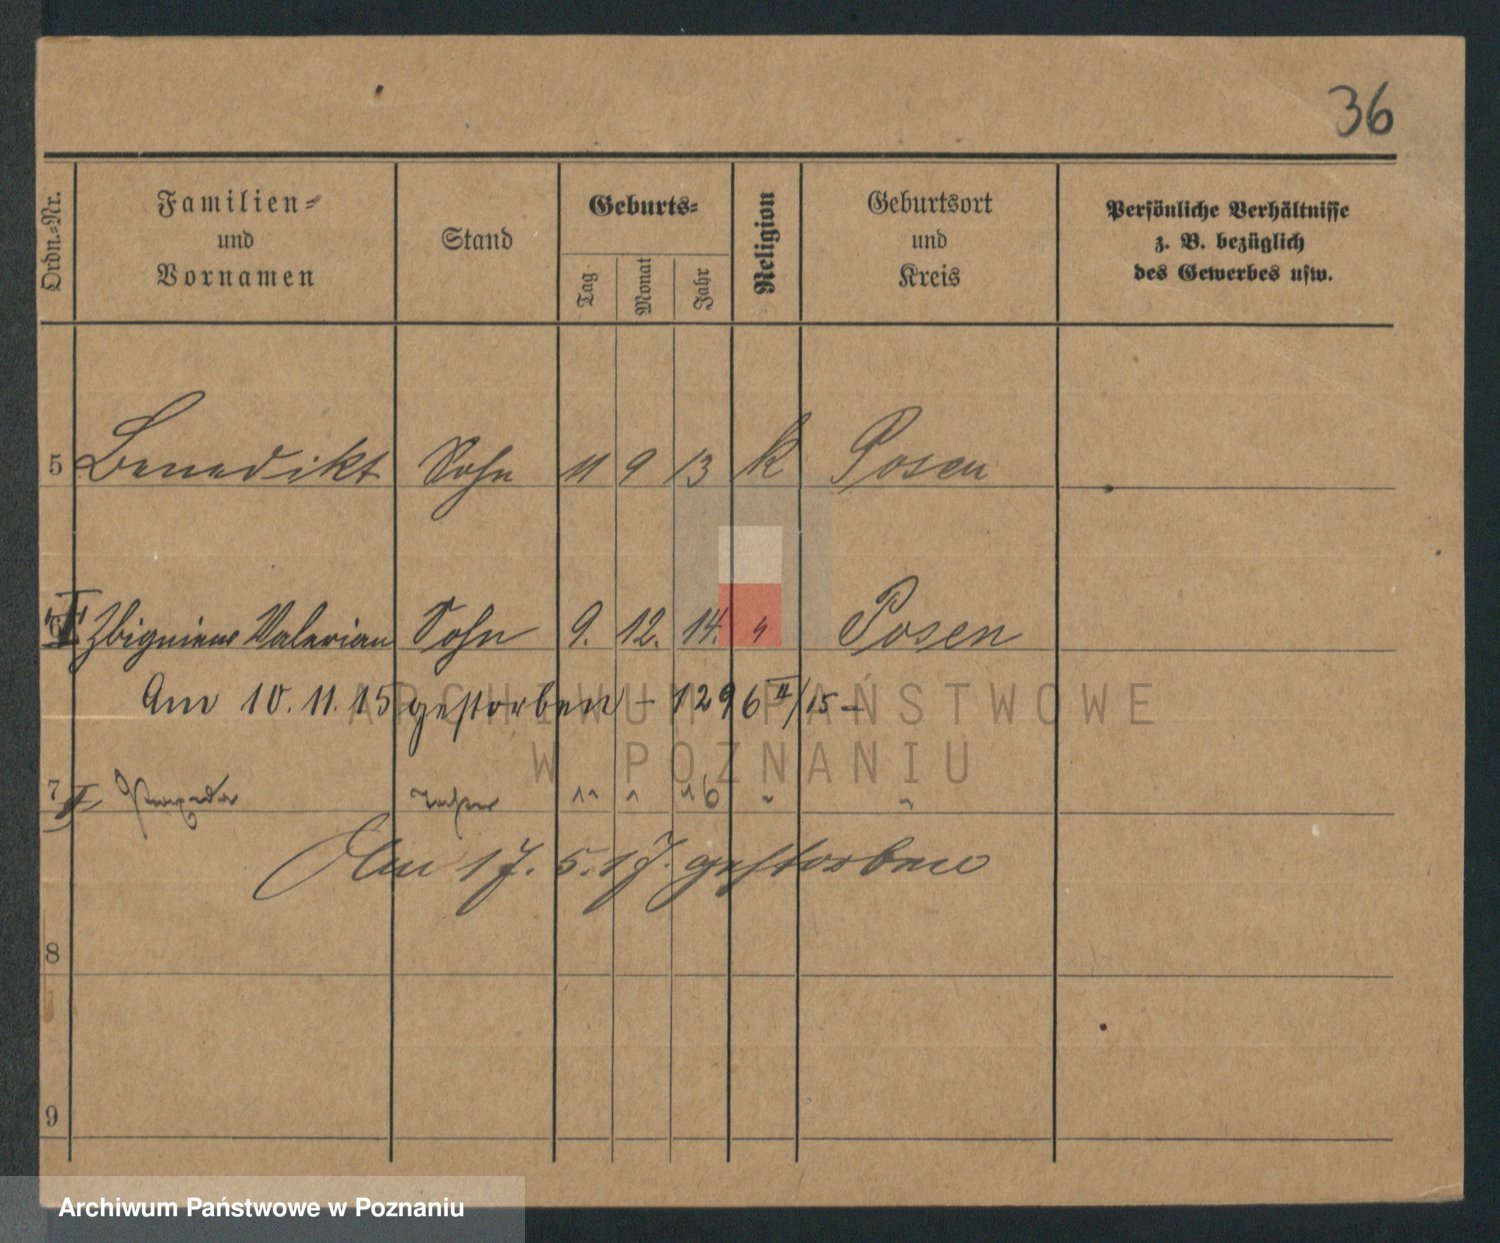 36
Ordn.-Nr.
Familien-
und
Vornamen
Stand
Geburts-
Tag
Monat
Jahr
Religion
Geburtsort
und
Kreis
Persönliche Verhältnisse
z. B. bezüglich
des Gewerbes usw.
5 Benedikt Sohn 11 9 13 k Posen
Zbigniew Valerian Sohn 9. 12. 14. " Posen
Am 10.11.15 gestorben - 1296 II/15 -
ARCHIWUM PAŃSTWOWE
W POZNANIU
7 16 "
Am 17. 5. 17. gestorben
8
9
Archiwum Państwowe w Poznaniu